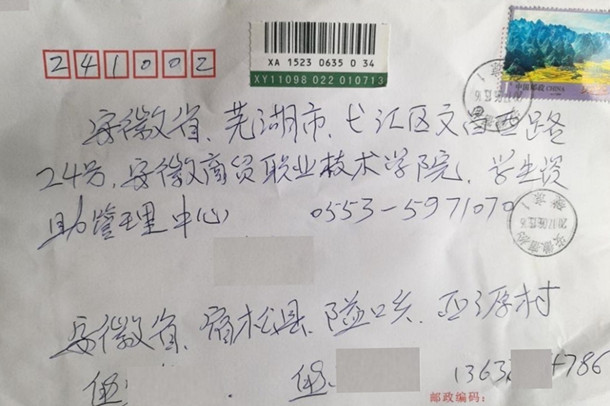 XA 1523 0635 0 34
XY11098 022 010713
241002
中国邮政 CHINA
安徽省、芜湖市、弋江区文昌西路
24号,安徽商贸职业技术学院、学生资
助管理中心 0553-5971070
安徽省、宿松县、隘口乡、
村
1363 4786
邮政编码: